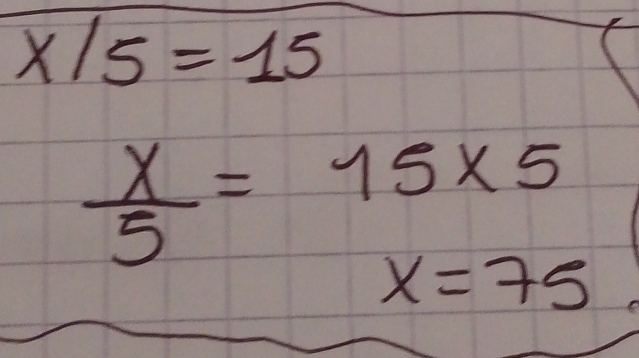 x/5 = 15
x/5 = 15 x 5
x = 75